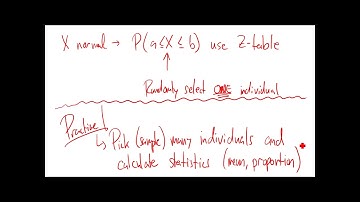 X normal → P(a≤X≤b) use Z-table
Randomly select ONE individual
Practice!
↳ Pick (sample) many individuals and
calculate statistics (mean, proportion)